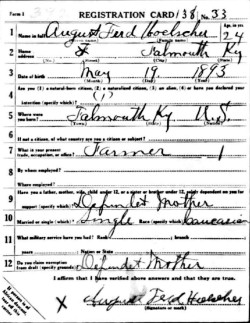 Form 1
REGISTRATION CARD 138 No. 33
1 Name in full August Ferd Hoelscher Age, in yrs. 24
2 Home address F Falmouth Ky
3 Date of birth May 19 1893
4 Are you (1) a natural-born citizen, (2) a naturalized citizen, (3) an alien, (4) or have you declared your intention (specify which)? (1)
5 Where were you born? Falmouth Ky. U.S.
6 If not a citizen, of what country are you a citizen or subject?
7 What is your present trade, occupation, or office? Farmer 1
8 By whom employed?
Where employed?
9 Have you a father, mother, wife, child under 12, or a sister or brother under 12, solely dependent on you for support (specify which)? Dependet Mother
10 Married or single (which)? Single Race (specify which)? Caucasian
11 What military service have you had? Rank branch
years Nation or State
12 Do you claim exemption from draft (specify grounds)? Dependet Mother
I affirm that I have verified above answers and that they are true.
X August Ferd Hoelscher
(Signature or mark)